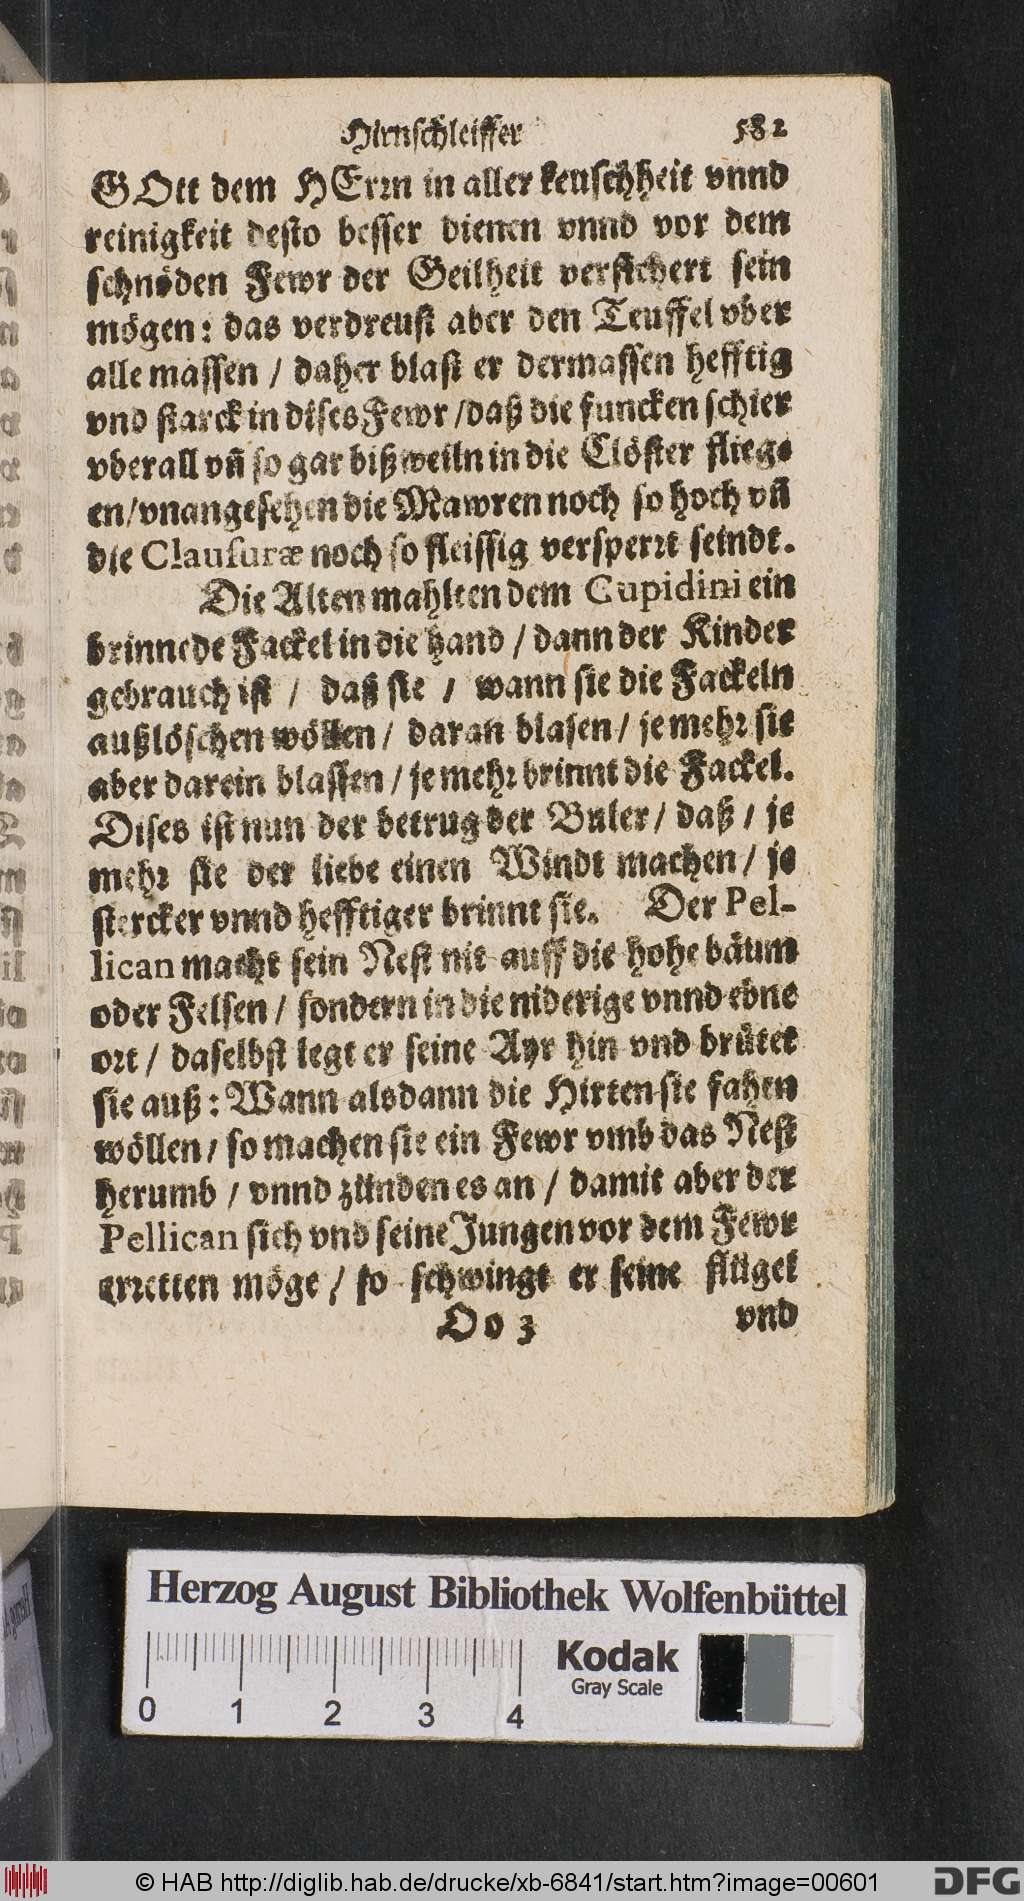 Hirnschleiffer 582
GOtt dem HErꝛn in aller keuschheit vnnd
reinigkeit desto besser dienen vnnd vor dem
schnöden Fewr der Geilheit versichert sein
mögen: das verdreust aber den Teuffel vber
alle massen / daher blast er dermassen hefftig
vnd starck in dises Fewr / daß die funcken schier
vberall vñ so gar bißweiln in die Clöster flieg-
en / vnangesehen die Mawren noch so hoch vñ
die Clausuræ noch so fleissig versperꝛt seindt.
Die Alten mahlten dem Cupidini ein
brinnede Fackel in die hand / dann der Kinder
gebrauch ist / daß sie / wann sie die Fackeln
außlöschen wöllen / daran blasen / je mehꝛ sie
aber darein blassen / je mehꝛ brinnt die Fackel.
Dises ist nun der betrug der Buler / daß / je
mehꝛ sie der liebe einen Windt machen / je
stercker vnnd hefftiger brinnt sie. Der Pel-
lican macht sein Nest nit auff die hohe bäum
oder Felsen / sondern in die niderige vnnd ebne
oꝛt / daselbst legt er seine Ayr hin vnd brütet
sie auß: Wann alsdann die Hirten sie fahen
wöllen / so machen sie ein Fewr vmb das Nest
herumb / vnnd zünden es an / damit aber der
Pellican sich vnd seine Jungen vor dem Fewr
erꝛetten möge / so schwingt er seine flügel
Oo 3 vnd
Herzog August Bibliothek Wolfenbüttel
Kodak
Gray Scale
0 1 2 3 4
© HAB http://diglib.hab.de/drucke/xb-6841/start.htm?image=00601
DFG